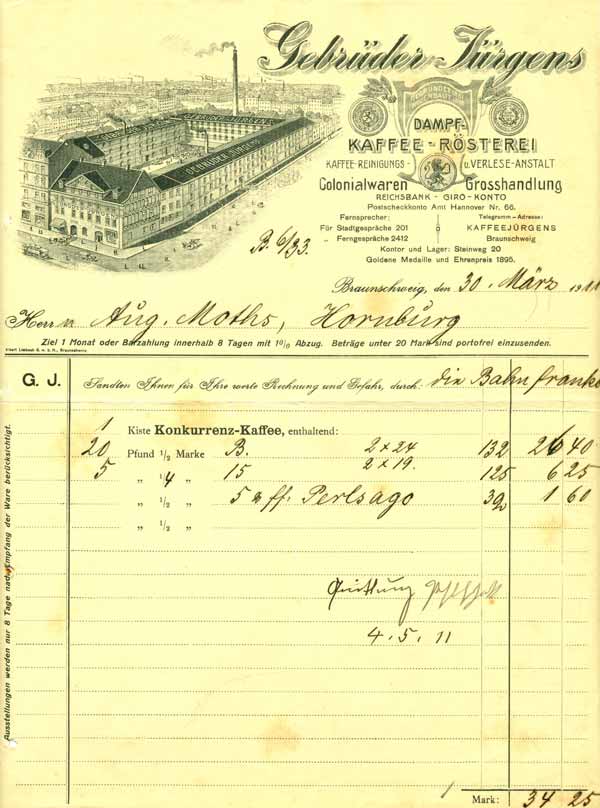 Gebrüder Jürgens
GEBRÜDER JÜRGENS
GEBRÜDER JÜRGENS
DAMPF-
KAFFEE-RÖSTEREI
KAFFEE-REINIGUNGS- u. VERLESE-ANSTALT
Colonialwaren Grosshandlung
REICHSBANK - GIRO - KONTO
Postscheckkonto Amt Hannover Nr. 66.
Fernsprecher: Telegramm-Adresse:
Für Stadtgespräche 201 KAFFEEJÜRGENS
„ Ferngespräche 2412 Braunschweig
Kontor und Lager: Steinweg 20
Goldene Medaille und Ehrenpreis 1895.
B. 6/33.
Braunschweig, den 30. März 1911
Herrn Aug. Moths, Hornburg
Ziel 1 Monat oder Barzahlung innerhalb 8 Tagen mit 1% Abzug. Beträge unter 20 Mark sind portofrei einzusenden.
G. J. Sandten Ihnen für Ihre werte Rechnung und Gefahr, durch: die Bahn franko
1 Kiste Konkurrenz-Kaffee, enthaltend:
20 Pfund 1/2 Marke B. 2 x 24 132 26 40
5 „ 1/4 „ 15 2 x 19. 125 6 25
„ 1/2 „ 5 ff. Perlsago 32 1 60
„ 1/2 „
Quittung
4. 5. 11
Mark: 34 25
Ausstellungen werden nur 8 Tage nach Empfang der Ware berücksichtigt.